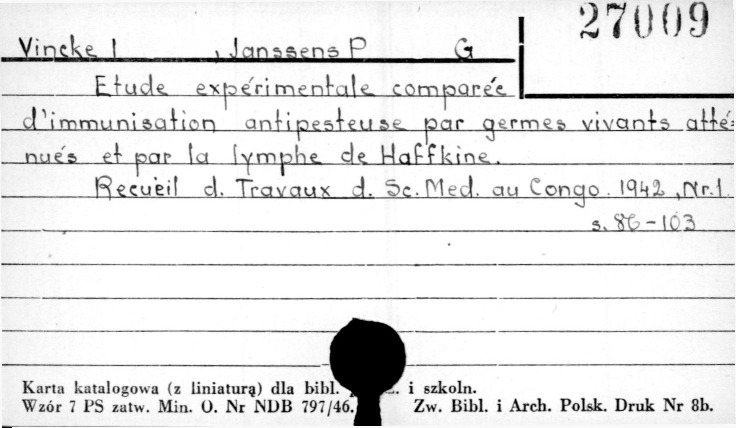 27009
Vincke I , Janssens P G
Etude expérimentale comparée
d'immunisation antipesteuse par germes vivants atté=
nués et par la lymphe de Haffkine.
Recueil d. Travaux d. Sc. Med. au Congo. 1942 , Nr. 1.
s. 86-103
Karta katalogowa (z liniaturą) dla bibl. i szkoln.
Wzór 7 PS zatw. Min. O. Nr NDB 797/46. Zw. Bibl. i Arch. Polsk. Druk Nr 8b.